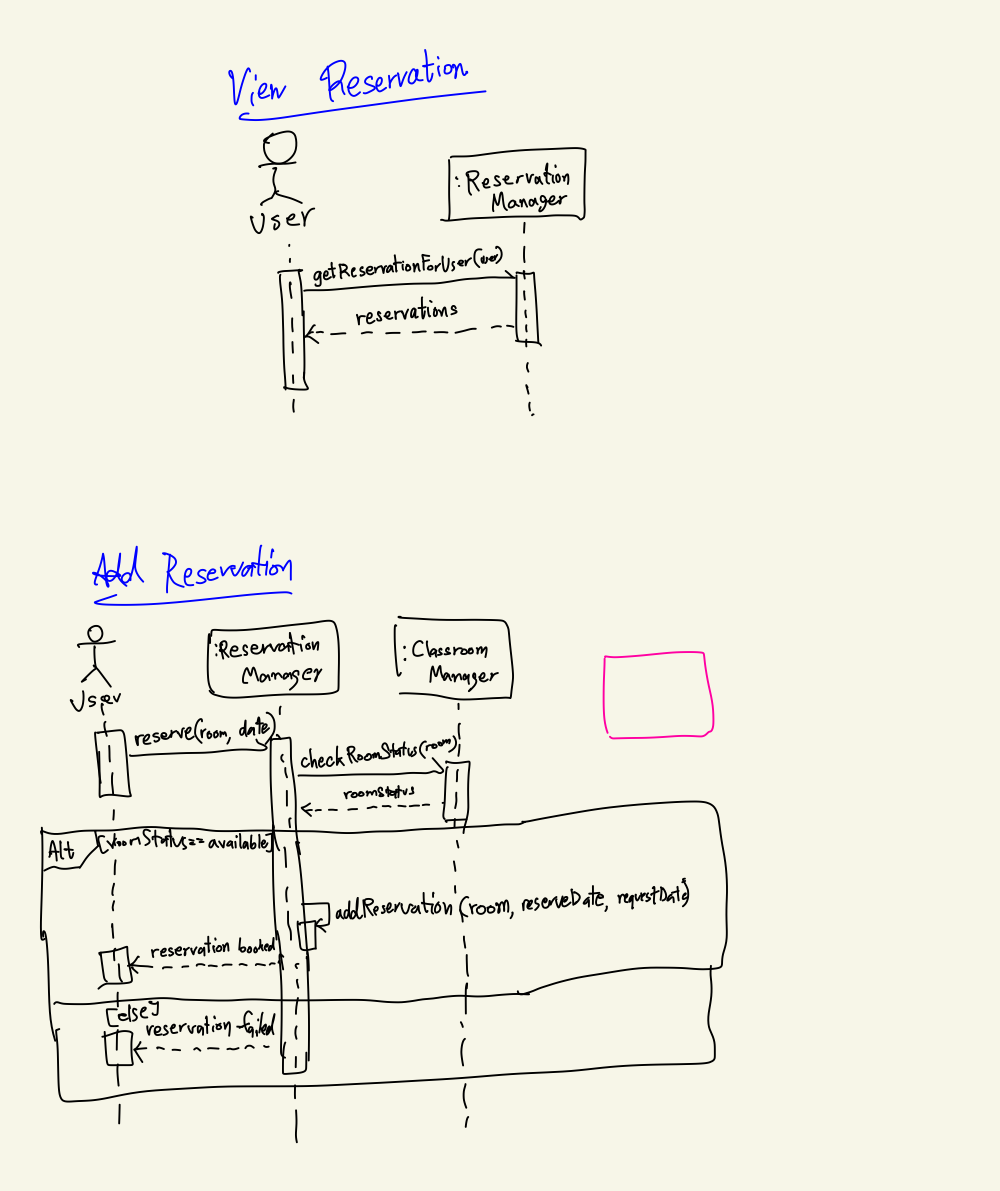 View Reservation
User
:Reservation
Manager
getReservationForUser(user)
reservations
Add Reservation
User
:Reservation
Manager
:Classroom
Manager
reserve(room, date)
checkRoomStatus(room)
roomStatus
Alt
[roomStatus== available]
addReservation (room, reserveDate, requestDate)
reservation booked
[else]
reservation failed